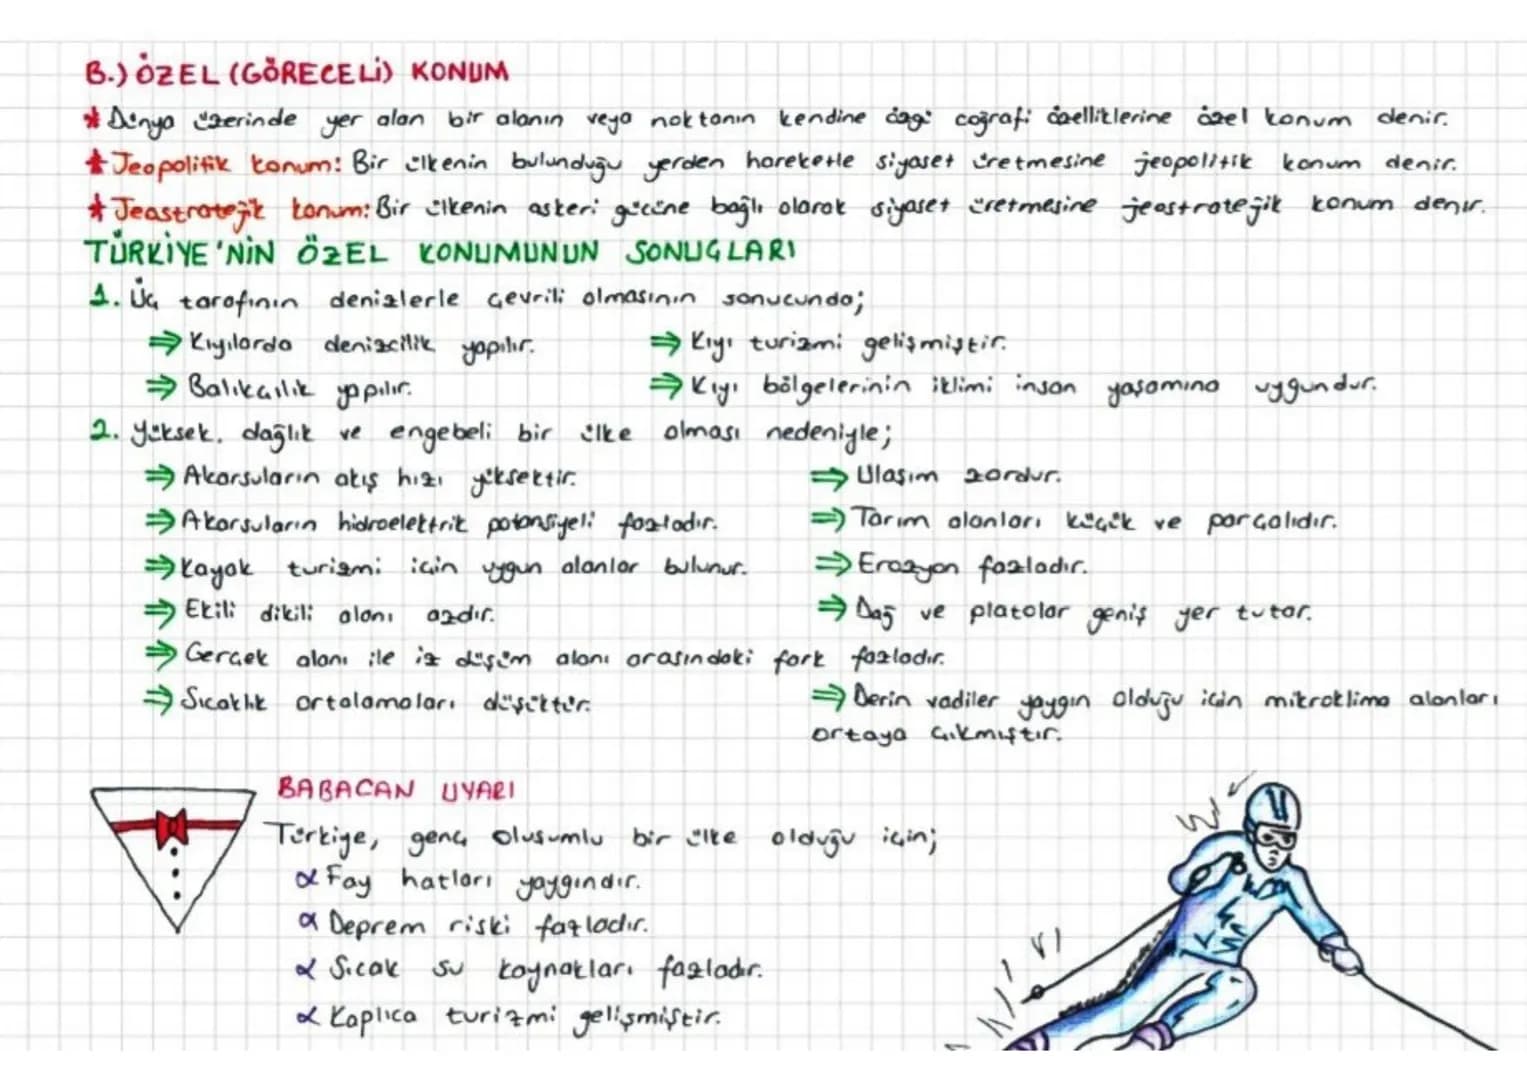 B.) ÖZEL (GÖRECELİ) KONUM
* Dünya üzerinde yer alan bir alanın veya noktanın kendine özgü coğrafi özelliklerine özel konum denir.
* Jeopolitik konum: Bir ülkenin bulunduğu yerden hareketle siyaset üretmesine jeopolitik konum denir.
* Jeostratejik konum: Bir ülkenin askeri gücüne bağlı olarak siyaset üretmesine jeostratejik konum denir.
TÜRKİYE'NİN ÖZEL KONUMUNUN SONUÇLARI
1. Üç tarafının denizlerle çevrili olmasının sonucunda;
⇒ Kıyılarda denizcilik yapılır. ⇒ Kıyı turizmi gelişmiştir.
⇒ Balıkçılık yapılır. ⇒ Kıyı bölgelerinin iklimi insan yaşamına uygundur.
2. Yüksek, dağlık ve engebeli bir ülke olması nedeniyle;
⇒ Akarsuların akış hızı yüksektir. ⇒ Ulaşım zordur.
⇒ Akarsuların hidroelektrik potansiyeli fazladır. ⇒ Tarım alanları küçük ve parçalıdır.
⇒ Kayak turizmi için uygun alanlar bulunur. ⇒ Erozyon fazladır.
⇒ Ekili dikili alanı azdır. ⇒ Dağ ve platolar geniş yer tutar.
⇒ Gerçek alanı ile iz düşüm alanı arasındaki fark fazladır.
⇒ Sıcaklık ortalamaları düşüktür. ⇒ Derin vadiler yaygın olduğu için mikroklima alanları
ortaya çıkmıştır.
BABACAN UYARI
Türkiye, genç oluşumlu bir ülke olduğu için;
α Fay hatları yaygındır.
α Deprem riski fazladır.
α Sıcak su kaynakları fazladır.
α Kaplıca turizmi gelişmiştir.